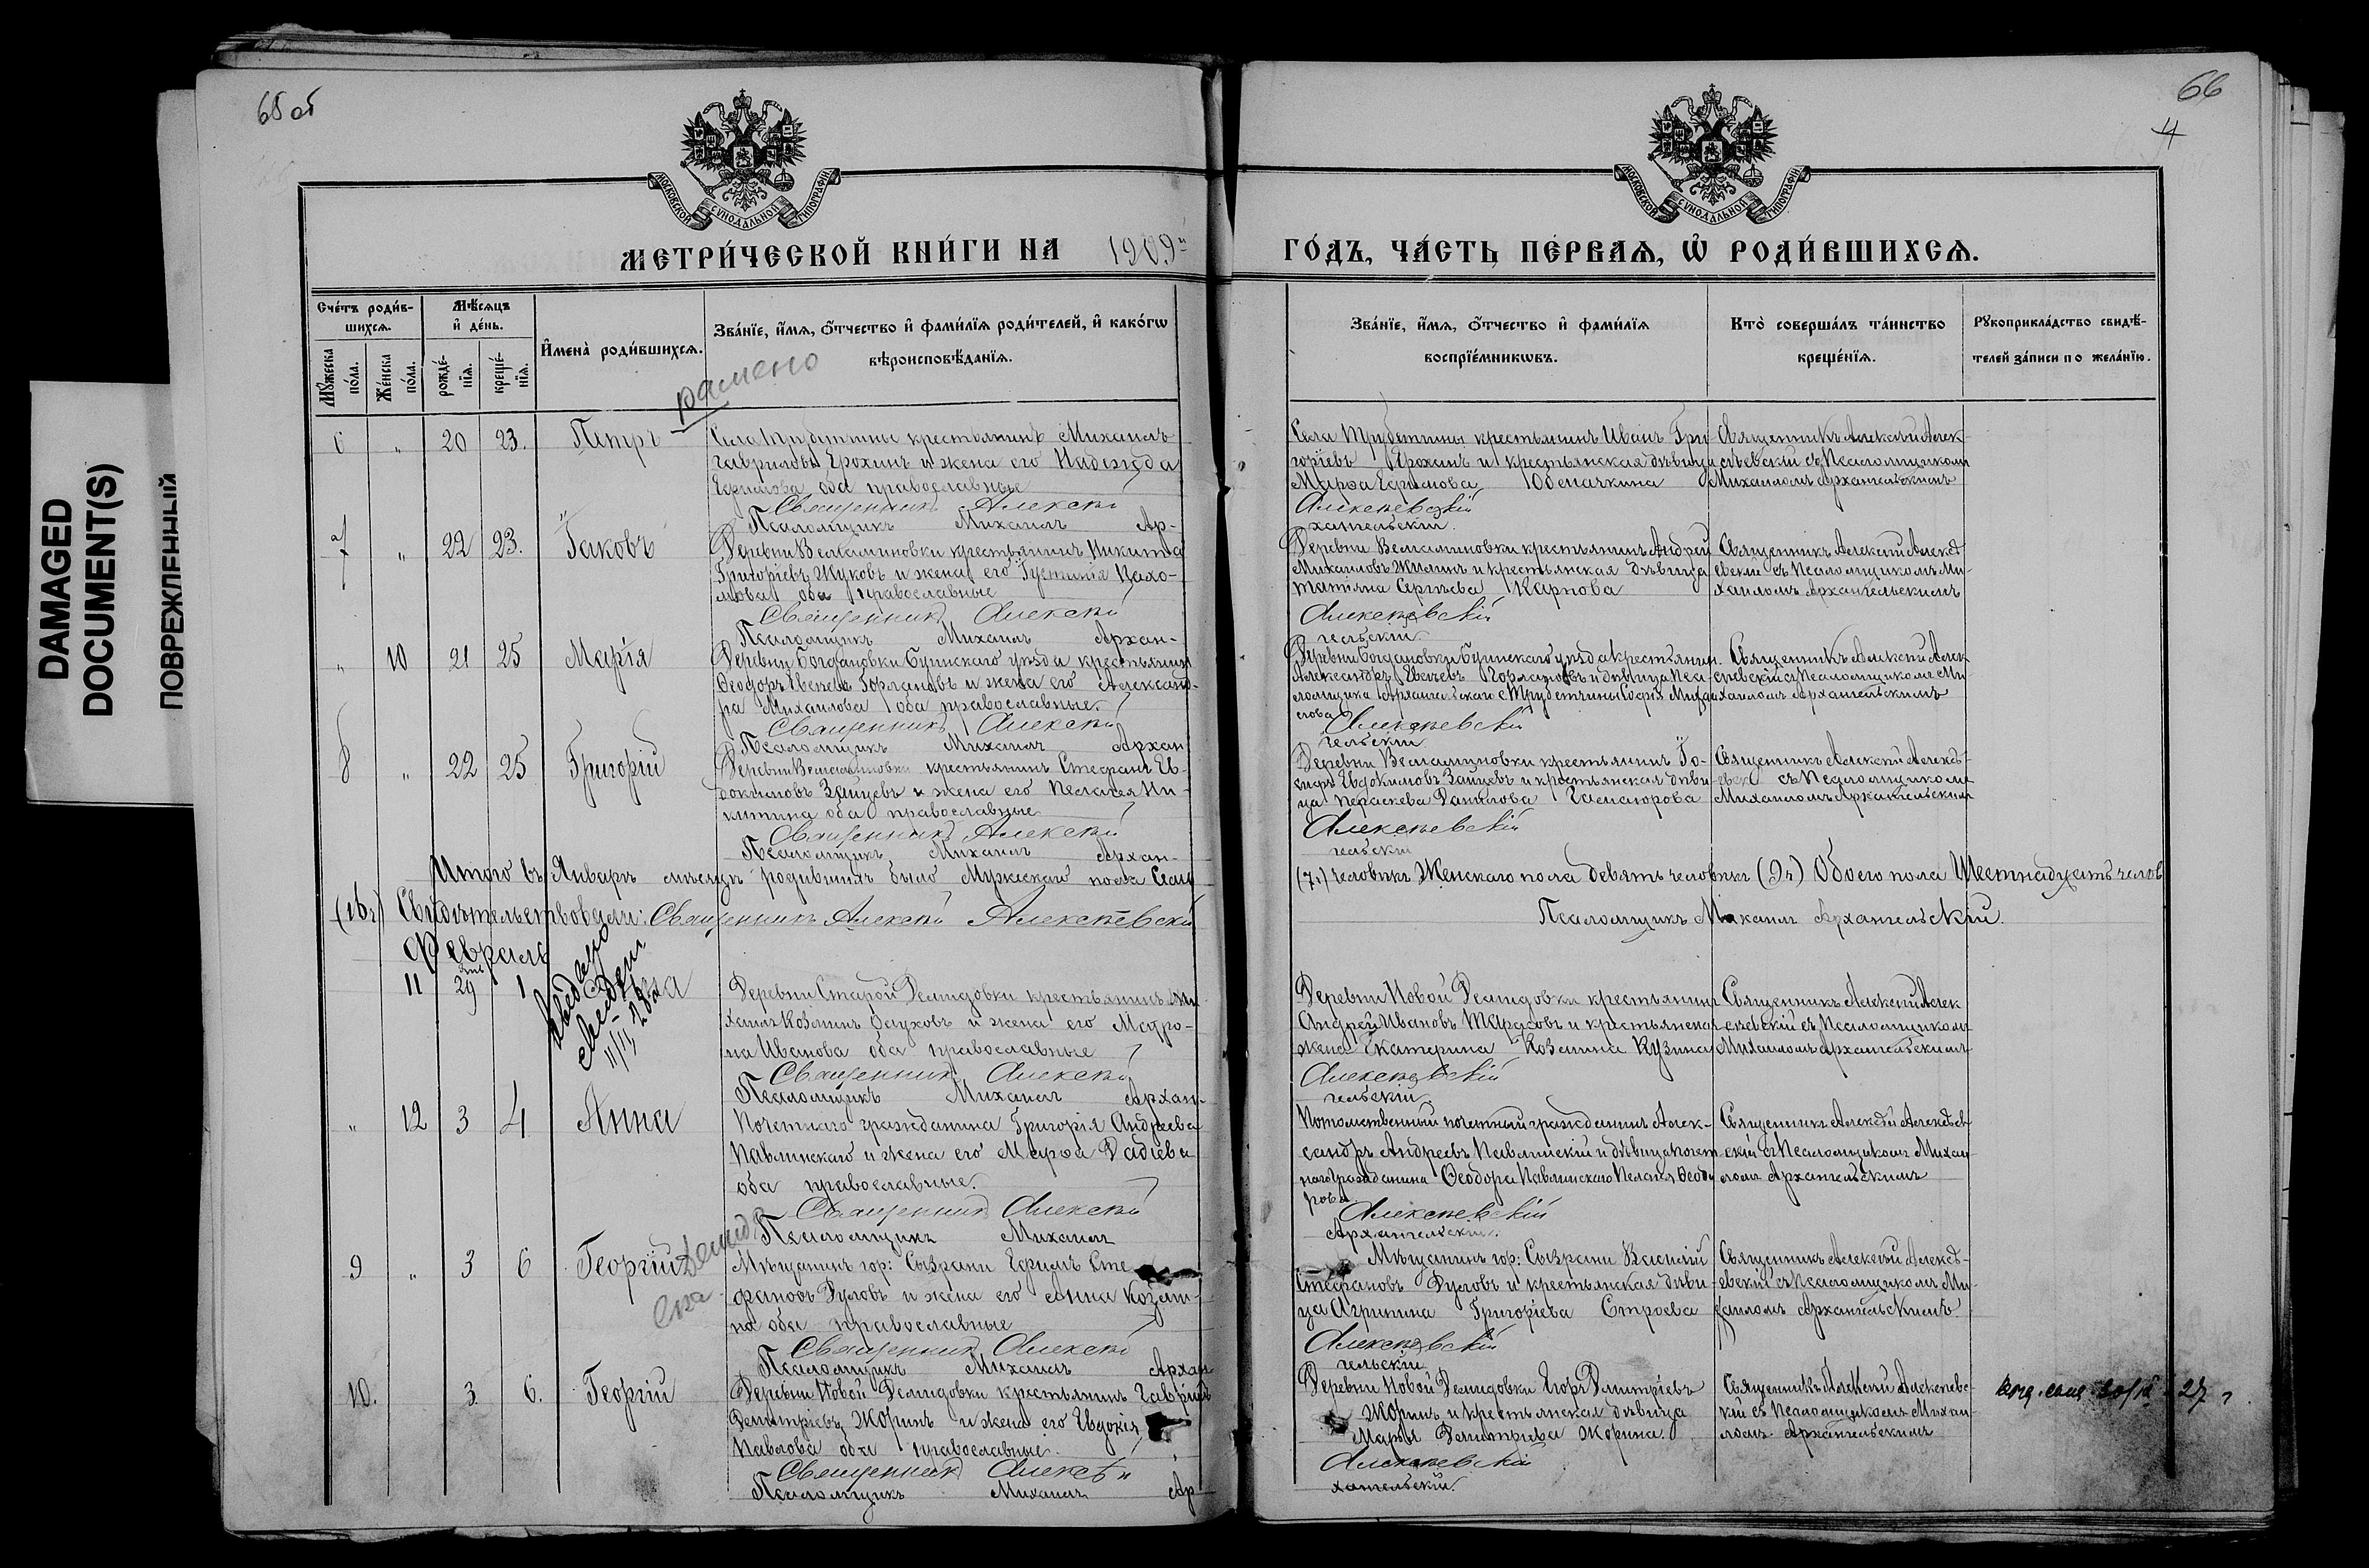 DAMAGED
DOCUMENT(S)
ПОВРЕЖДЕННЫЙ
65 об
66
4
МОСКОВСКОЙ СѴНОДАЛЬНОЙ ТИПОГРАФІИ
МОСКОВСКОЙ СѴНОДАЛЬНОЙ ТИПОГРАФІИ
МЕТРИ́ЧЕСКОЙ КНИ́ГИ НА 1909 ГО́ДЪ, ЧА́СТЬ ПЕ́РВАѦ, Ѡ҆ РОДИ́ВШИХСѦ.
Сче́тъ роди́в-
шихсѧ.
Мѣ́сѧцъ
и҆ де́нь.
Мꙋ́жеска
по́ла.
Же́нска
по́ла.
рожде́-
нїѧ.
креще́-
нїѧ.
И҆мена̀ роди́вшихсѧ.
Зва́нїе, и҆́мѧ, ѻ҆́тчество и҆ фами́лїѧ роди́телей, и҆ како́гѡ
вѣроисповѣ́данїѧ.
Зва́нїе, и҆́мѧ, ѻ҆́тчество и҆ фами́лїѧ
воспрїе́мникѡвъ.
Кто̀ соверша́лъ та́инство
креще́нїѧ.
Рꙋкоприкла́дство свидѣ́-
телей за́писи по жела́нїю.
6 " 20 23. Петръ
Села Трубетчины крестьянинъ Михаилъ
Гавриловъ Ерохинъ и жена его Надежда
Ефимова оба православные
Священникъ Алексѣй
Псаломщикъ Михаилъ Ар-
Села Трубетчины крестьянинъ Иванъ Гри-
горіевъ Ерохинъ и крестьянская дѣвица
Марѳа Ефимова
Алексѣевскій
хангельскій.
Священникъ Алексѣй Алек-
сѣевскій съ Псаломщикомъ
Михаиломъ Архангельскимъ
7 " 22 23. Іаковъ
Деревни Вельяминовки крестьянинъ Никита
Григоріевъ Жуковъ и жена его
оба православные
Священникъ Алексѣй
Псаломщикъ Михаилъ Архан-
Деревни Вельяминовки крестьянинъ Андрей
Михаиловъ Жилинъ и крестьянская дѣвица
Татіяна Сергѣева Карпова
Алексѣевскій
гельскій.
Священникъ Алексѣй Алексѣ-
евскій съ Псаломщикомъ Ми-
хаиломъ Архангельскимъ
" 10 21 25 Марія
Деревни Богдановки Буинскаго уѣзда крестьянинъ
Ѳеодоръ Горлановъ и жена его Александ-
ра Михаилова оба православные.
Священникъ Алексѣй
Псаломщикъ Михаилъ Архан-
Деревни Богдановки Буинскаго уѣзда крестьянин.
Александръ Горлановъ и дѣвица Пса-
ломщика Архангельскаго с Трубетчины Софія Михаи-
лова
Алексѣевскій
гельскій
Священникъ Алексѣй Алек-
сѣевскій съ Псаломщикомъ Ми-
хаиломъ Архангельскимъ
8 " 22 25 Григорій
Деревни Вельяминовки крестьянинъ Стефанъ Ев-
докимовъ Зайцевъ и жена его Пелагея Ни-
китина оба православные
Священникъ Алексѣй
Псаломщикъ Михаилъ Архан-
Деревни Вельяминовки крестьянинъ Іо-
сифъ Евдокимовъ Зайцевъ и крестьянская дѣви-
ца Параскева Данилова
Алексѣевскій
гельскій
Священникъ Алексѣй Алексѣ-
съ Псаломщикомъ
Михаиломъ Архангельскимъ
Итого въ Январѣ мѣсяцѣ родившихъ было Мужескаго пола Семь
(7.) человѣкъ Женскаго пола девять человѣкъ (9.) Обоего пола Шестнадцать челов
(16.) Свидѣтельствовали: Священникъ Алексѣй Алексѣевскій
Псаломщикъ Михаилъ Архангельскій.
Февраль
11 29 1
Деревни Старой Демидовки крестьянинъ Ми-
хаилъ Козминъ и жена его Матро-
на Иванова оба православные
Священникъ Алексѣй
Псаломщикъ Михаилъ Архан-
Деревни Новой Демидовки крестьянинъ
Андрей Ивановъ Тарасовъ и крестьянская
жена Екатерина Козмина Кузина
Алексѣевскій
гельскій.
Священникъ Алексѣй Алек
сѣевскій съ Псаломщикомъ
Михаиломъ Архангельскимъ
" 12 3 4 Анна
Почетнаго гражданина Григорія Андреева
Павлинскаго и жена его Марѳа
оба православные.
Священникъ Алексѣй
Псаломщикъ Михаилъ
Потомственный почетный гражданинъ Алек-
сандръ Андреевъ Павлинскій и дѣвица почет-
наго гражданина Ѳеодора Павлинскаго Пелагея Ѳеодо-
рова
Алексѣевскій
Архангельскій.
Священникъ Алексѣй Алексѣев-
скій съ Псаломщикомъ Михаи-
ломъ Архангельскимъ
9 " 3 6 Георгій
Мѣщанинъ гор: Сызрани Ефимъ Сте-
фановъ и жена его Анна Козми-
на оба православные
Священникъ Алексѣй
Псаломщикъ Михаилъ Архан
Мѣщанинъ гор: Сызрани Василій
Стефановъ и крестьянская дѣви-
ца Агрипина Григоріева Строева
Алексѣевскій
гельскій
Священникъ Алексѣй Алексѣ-
евскій съ Псаломщикомъ Ми-
хаиломъ Архангельскимъ
10. 3. 6. Георгій
Деревни Новой Демидовки крестьянинъ Гавріилъ
Димитріевъ Жоринъ и жена его Евдокія
Павлова оба православные.
Священникъ Алексѣй
Псаломщикъ Михаилъ Ар
Деревни Новой Демидовки Егоръ Димитріевъ
Жоринъ и крестьянская дѣвица
Марья Димитріева Жорина.
Алексѣевскій
хангельскій.
Священникъ Алексѣй Алексѣевс-
кій съ Псаломщикомъ Михаи-
ломъ Архангельскимъ